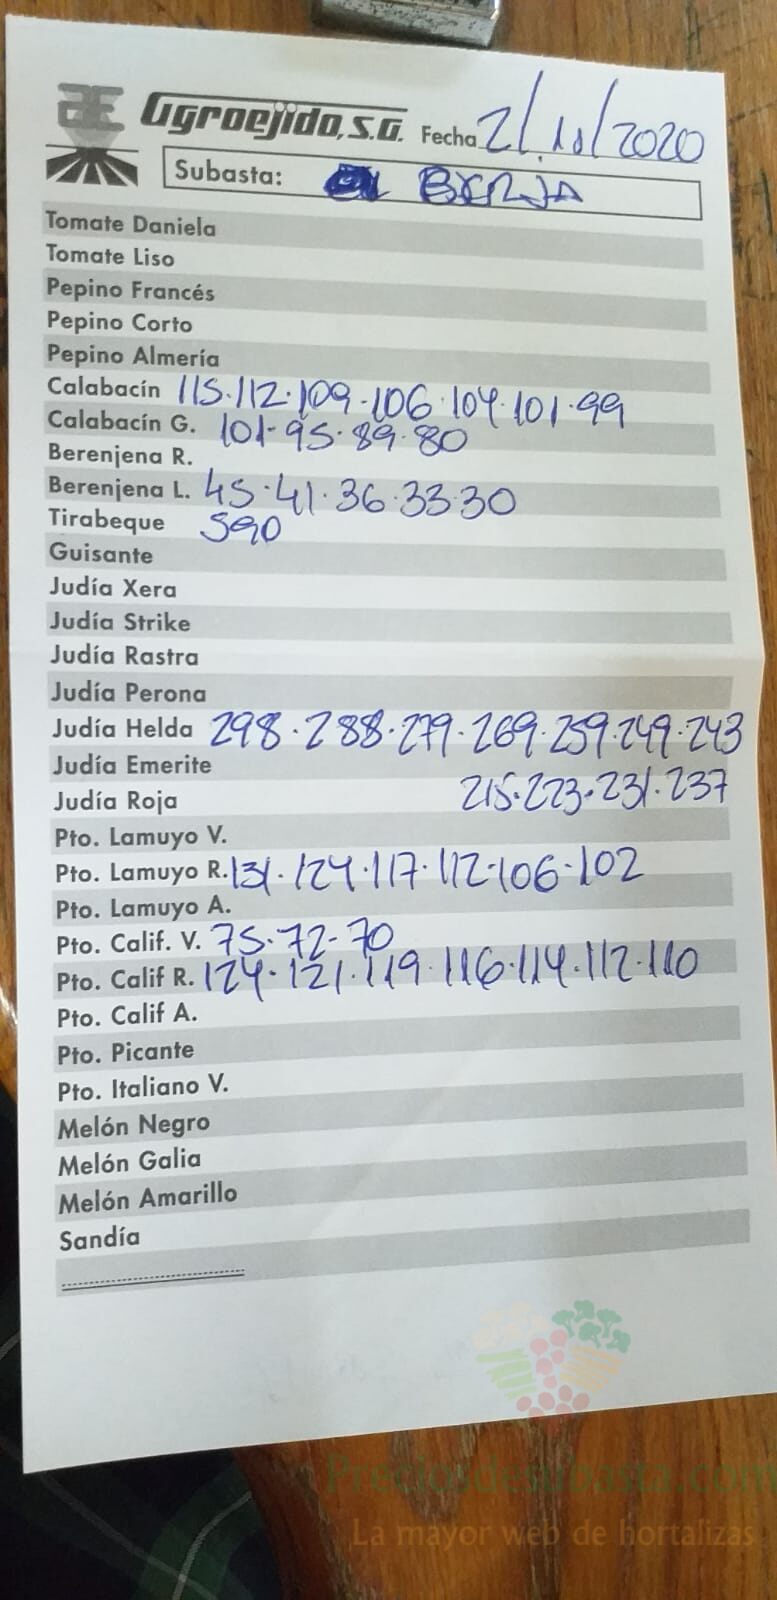 Agroejido, S.A. Fecha 2/10/2020
Subasta: BERJA
Tomate Daniela
Tomate Liso
Pepino Francés
Pepino Corto
Pepino Almería
Calabacín 115.112.109.106.104.101.99
Calabacín G. 101-95.89.80
Berenjena R.
Berenjena L. 45.41.36.33.30
Tirabeque 590
Guisante
Judía Xera
Judía Strike
Judía Rastra
Judía Perona
Judía Helda 298.288.279.269.259.249.243
Judía Emerite
Judía Roja 215.223.231.237
Pto. Lamuyo V.
Pto. Lamuyo R. 131.124.117.112-106-102
Pto. Lamuyo A.
Pto. Calif. V. 75.72-70
Pto. Calif R. 124.121.119.116.114.112.110
Pto. Calif A.
Pto. Picante
Pto. Italiano V.
Melón Negro
Melón Galia
Melón Amarillo
Sandía
Preciosdesubasta.com
La mayor web de hortalizas